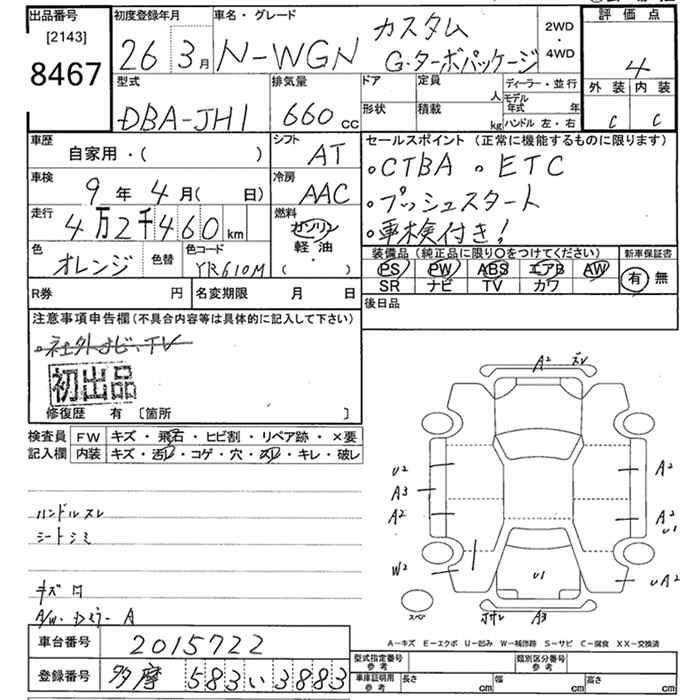 出品番号 初度登録年月 車名・グレード 2WD・4WD 評価点
[2143]
8467
26 3月 N-WGN カスタム G・ターボパッケージ 4
型式 排気量 ドア 定員 人 ディーラー・並行 外装 内装
DBA-JH1 660cc 形状 積載 kg モデル年式 年 ハンドル 左・右 C C
車歴 自家用・( ) シフト AT
セールスポイント (正常に機能するものに限ります)
・CTBA ・ETC
車検 9年4月( 日) 冷房 AAC
・プッシュスタート
走行 4万2千460km 燃料 ガソリン 軽油 ( ・ )
・車検付き!
色 オレンジ 色替 色コード YR610M
装備品 (純正品に限り○をつけてください) 新車保証書
PS PW ABS エアB AW 有 無
SR ナビ TV カワ
R券 円 名変期限 月 日
後日品
注意事項申告欄(不具合内容等は具体的に記入して下さい)
・社外ナビ、TV
初出品
修復歴 有 〔箇所 〕
検査員 FW キズ・飛石・ヒビ割・リペア跡・×要
記入欄 内装 キズ・汚レ・コゲ・穴・スレ・キレ・破レ
ハンドルスレ
シートシミ
キズ
A/W・ドミラーA
A2 ズレ
U2 A2
A3
A2 A2 U1
W2 U1 UA2
スペア A3
A-キズ E-エクボ U-凹み W-補修跡 S-サビ C-腐食 XX-交換済
車台番号 2015722
型式指定番号 参考 類別区分番号 参考
登録番号 多摩 583 い 3883
車庫証明用 参考 長さ cm 幅 cm 高さ cm